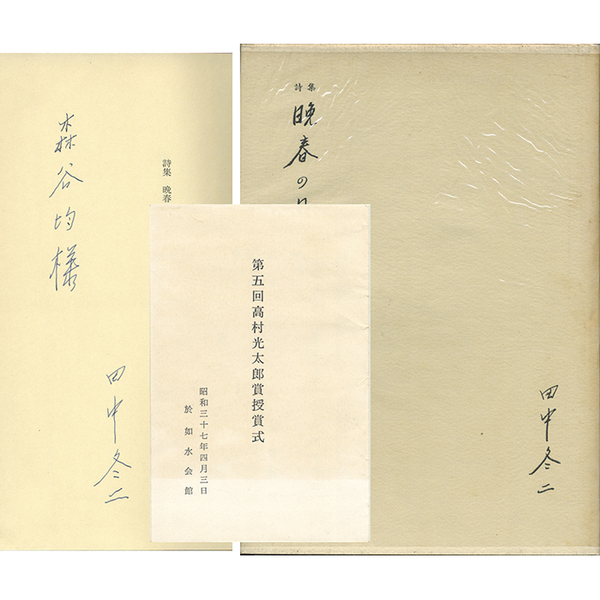 森谷均様
田中冬二
詩集 晩春
第五回高村光太郎賞授賞式
昭和三十七年四月三日
於如水会館
詩集
晩春の
田中冬二